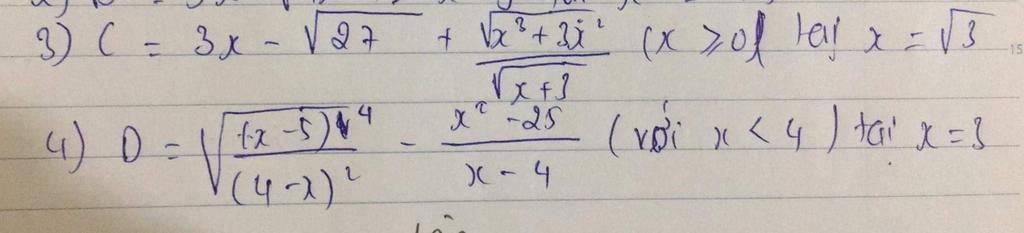 3) C = 3x - √27 + √(x³ + 3x²) / √(x + 3) (x ≥ 0) tại x = √3
4) D = √((x - 5)⁴ / (4 - x)²) - (x² - 25) / (x - 4) (với x < 4) tại x = 3